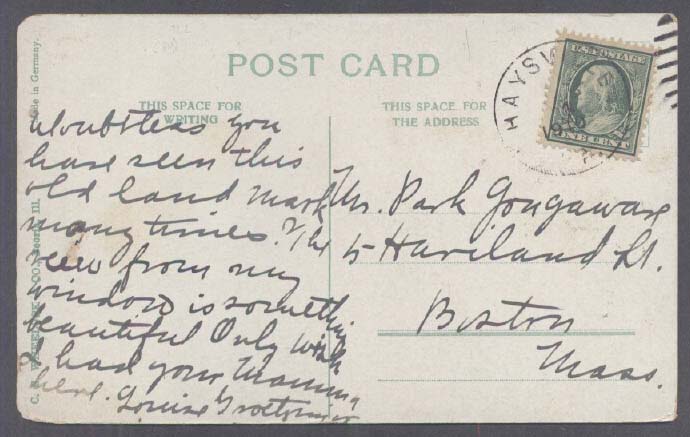 POST CARD
THIS SPACE FOR
WRITING
THIS SPACE FOR
THE ADDRESS
Made in Germany.
HAYSV
U.S. POSTAGE
ONE CENT
Doubtless you
have seen this
old land mark
many times. The
view from my
window is something
beautiful Only wish
I had your Mamma
here. Louise
Mr. Park Gongaware
15 Haviland St.
Boston
Mass.